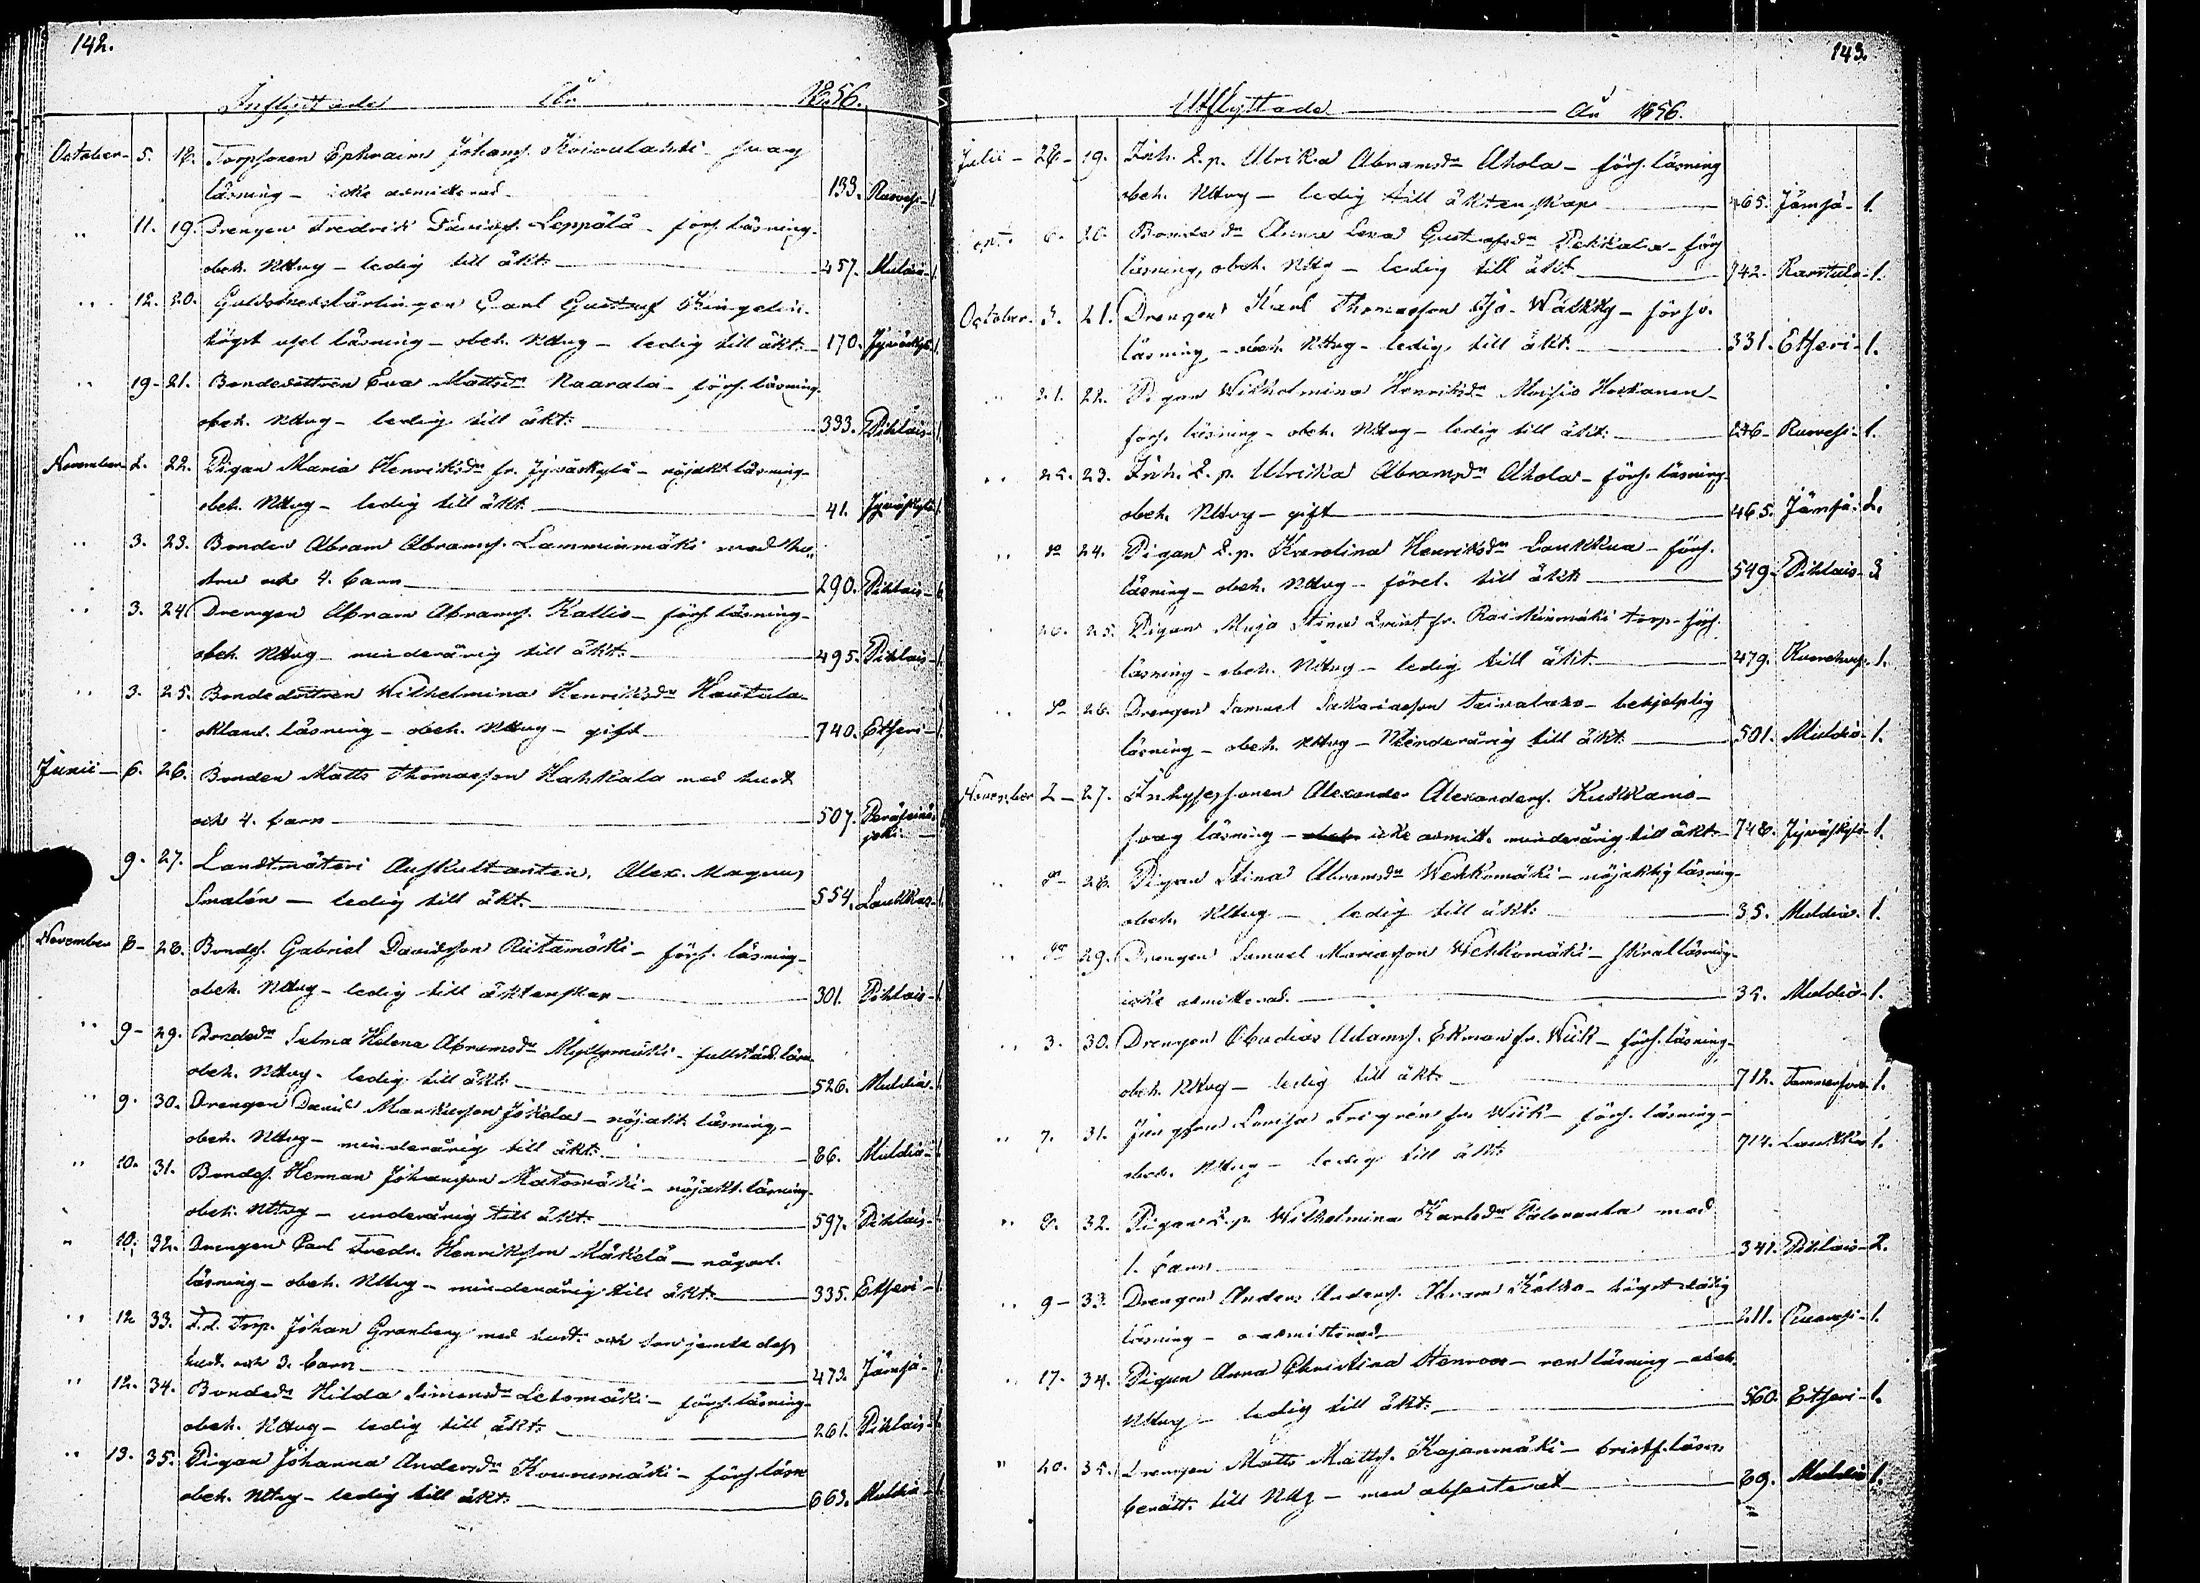 142.
Inflyttade År 1856.
October 5. 18. Torpsonen Ephraim Johans. Koivulahti svag
läsning – icke admitterad 133. Ruovesi 1.
" 11. 19. Drengen Fredrik Leppälä – förs. läsning –
obeh. Nttvg – ledig till äkt: 457. Multia 1.
" 12. 20. Carl Gustaf Ringelin
högst usel läsning – obeh. Nttvg – ledig till äkt: 170. Jyväskylä 1.
" 19. 21. Bondedottren Eva Mattsdr Naarala – förs. läsning –
obeh. Nttvg – ledig till äkt: 333. Pihlais 1.
November 2. 22. Pigan Maria Henriksdr fr. Jyväskylä – nöjakt läsning –
obeh. Nttvg – ledig till äkt. 41. Jyväskylä 1.
" 3. 23. Bonden Abram Abrams. Lamminmäki med hu-
stru och 4. barn 290. Pihlais 6.
" 3. 24. Drengen Abram Abrams. Kallio – förs. läsning –
obeh. Nttvg – minderårig till äkt: 495. Pihlais 1.
" 3. 25. Bondedottren Wilhelmina Henriksdr Hautala
okland. läsning – obeh. Nttvg – gift 740. Etseri 1.
Junii 6. 26. Bonden Matts Thomasson Hahkala med hust
och 4. barn 507. Peräseinä-
joki
9. 27. Landtmäteri Auskultanten, Alex. Magnus
Smalén – ledig till äkt. 554. Laukkas 1.
November 8. 28. Bondes. Gabriel Davidsson Riitamäki – förs. läsning –
obeh. Nttvg – ledig till äktenskap 301. Pihlais 1.
" 9. 29. Bondedr Selma Helena Abramsdr Myllymäki –
obeh. Nttvg – ledig till äkt: 526. Multia 1.
" 9. 30. Drengen David Markusson Jokela – nöjakt läsning –
obeh. Nttvg – minderårig till äkt: 86. Multia 1.
" 10. 31. Bondes. Herman Johansson Matomäki – nöjakt. läsning –
obeh. Nttvg – underårig till äkt: 597. Pihlais 1.
" 10. 32. Drengen Carl Fredr. Henriksson Mäkelä – någorl.
läsning – obeh. Nttvg – minderårig till äkt: 335. Etseri 1.
" 12. 33. F.d. Torp. Johan Granberg med hust. och son jemte dess
hust. och 3. barn 473. Jämsä 7.
" 12. 34. Bondedr Hilda Simonsdr Lehtomäki – förs. läsning –
obeh. Nttvg – ledig till äkt: 261. Pihlais 1.
" 13. 35. Pigan Johanna Andersdr – förs. läsn
obeh. Nttvg – ledig till äkt: 663. Multia 1.
143.
Utflyttade År 1856.
Julii 28. 19. Inh. Q.p. Ulrika Abramsdr Ahola – förs. läsning
obeh. Nttvg – ledig till äktenskap 465. Jämsä 1.
20. Bondedr Anna Lena Gustafsdr Pekkala – förs
läsning, obeh. Nttvg – ledig till äkt 742. Karstula 1.
October 3. 21. Drengen Karl Thomasson Iso-Wälkky – försv.
läsning – obeh. Nttvg – ledig till äkt. 331. Etseri 1.
" 21. 22. Pigan Wilhelmina Henriksdr
förs. läsning – obeh. Nttvg – ledig till äkt: 246. Ruovesi 1.
" 25. 23. Inh. Q.p. Ulrika Abramsdr Ahola – förs. läsning
obeh. Nttvg – gift 465. Jämsä 2.
" do 24. Pigan Q.p. Karolina Henriksdr Laukkua – förs.
läsning – obeh. Nttvg – förel. till äkt 549. Pihlais 3.
25. Pigan Maja Stina fr. Raiskinmäki torp – förs.
läsning – obeh. Nttvg – ledig till äkt 479. 1.
" do 26. Drengen Samuel Sakariasson Taivalaho – behjelplig
läsning – obeh. Nttvg – Minderårig till äkt. 501. Multia 1.
November 2. 27. Inhysessonen Alexander Alexanders.
svag läsning – icke admitt. minderårig till äkt: 748. Jyväskylä 1.
" do 28. Pigan Stina Abramsdr Wehkomäki – nöjaktig läsning
obeh. Nttvg – ledig till äkt: 35. Multia 1.
" do 29. Drengen Samuel Mariasson Wehkomäki – skral läsning
icke admitterad. 35. Multia 1.
" 3. 30. Drengen Obadias Adams. Ekman fr. Wiik – förs. läsning –
obeh. Nttvg – ledig till äkt: 712. Tammerfors 1.
" 7. 31. Jungfrun Lovisa fr. Wiik – förs. läsning –
obeh. Nttvg – ledig till äkt: 714. Laukkas 1.
" 8. 32. Pigan Q.p. Wilhelmina Karlsdr Päloranta med
1. barn 341. Pihlais 2.
" 9. 33. Drengen Anders Anders. – högst dålig
läsning – o admitterad 211. Ruovesi 1.
" 17. 34. Pigan Anna Christina Stenroos – ren läsning – obeh.
Nttvg – ledig till äkt: 560. Etseri 1.
" 20. 35. Drengen Matts Matts. Kajanmäki – bristf. läsn:
berätt. till Nttvg – men absenterat 69. Multia 1.